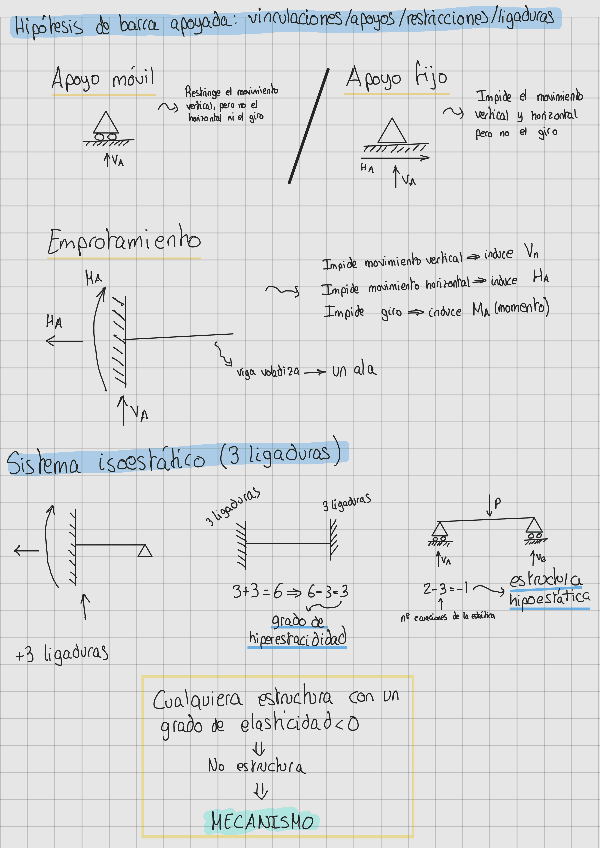 Hipótesis de barca apoyada: vinculaciones/apoyos/restricciones/ligaduras
Apoyo móvil
Restringe el movimiento
vertical, pero no el
horizontal ni el giro
VA
Apoyo fijo
Impide el movimiento
vertical y horizontal
pero no el giro
HA
VA
Emprotamiento
HA
HA
VA
Impide movimiento vertical ⇒ induce Vn
Impide movimiento horizontal ⇒ induce HA
Impide giro ⇒ induce MA (momento)
viga voladiza → un ala
Sistema isoestático (3 ligaduras)
+3 ligaduras
3 ligaduras
3 ligaduras
3+3=6 ⇒ 6-3=3
grado de
hiperestacididad
P
VA
VB
2-3=-1
nº ecuaciones de la estática
estructura
hipoestática
Cualquiera estructura con un
grado de elasticidad<0
⇓
No estructura
⇓
MECANISMO